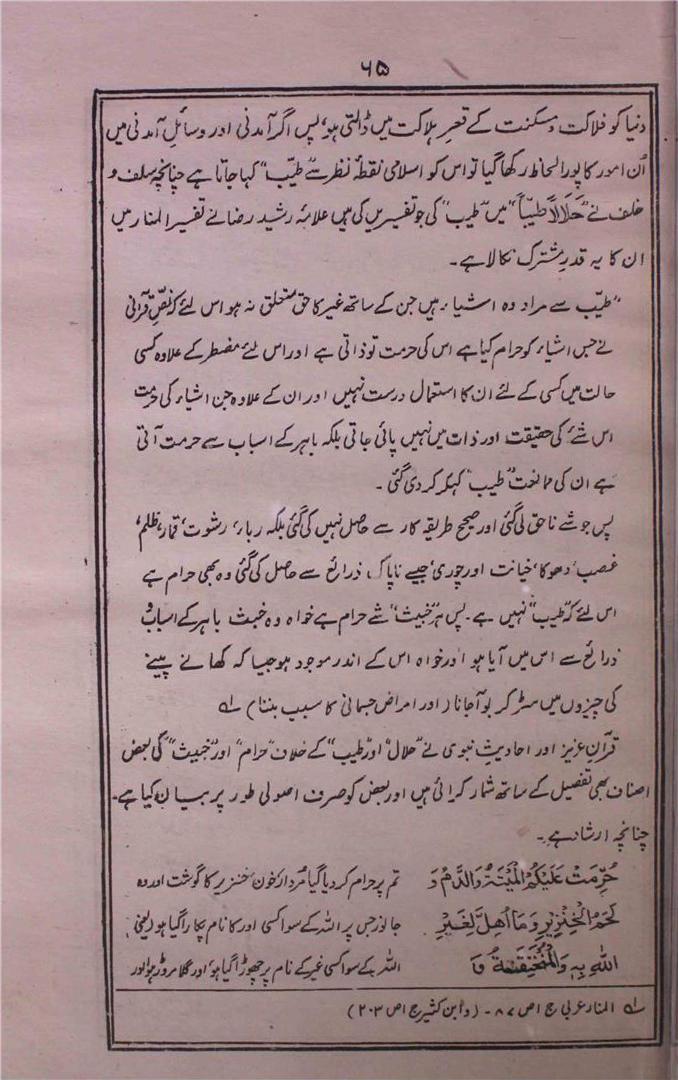 ۶۵
دنیا کو فلاکت و مسکنت کے قعرِ ہلاکت میں ڈالتی ہو، پس اگر آمدنی اور وسائلِ آمدنی میں
اُن امور کا پورا لحاظ رکھا گیا تو اس کو اسلامی نقطۂ نظر سے "طیّب" کہا جاتا ہے چنانچہ سلف و
خلف نے "حَلَالاً طَیِّباً" میں "طیب" کی جو تفسیریں کی ہیں علامہ رشید رضا نے تفسیر المنار میں
ان کا یہ قدرِ مشترک نکالا ہے۔
"طیّب سے مراد وہ اشیاء ہیں جن کے ساتھ غیر کا حق متعلق نہ ہو اس لئے کہ نصِّ قرآنی
نے جس اشیاء کو حرام کیا ہے اس کی حرمت تو ذاتی ہے اور اس لئے مضطر کے علاوہ کسی
حالت میں کسی کے لئے ان کا استعمال درست نہیں اور ان کے علاوہ جن اشیاء کی حرمت
اس شئے کی حقیقت اور ذات میں نہیں پائی جاتی بلکہ باہر کے اسباب سے حرمت آتی
ہے ان کی ممانعت "طیب" کہہ کر کر دی گئی۔
پس جو شے ناحق لی گئی اور صحیح طریقہ کار سے حاصل نہیں کی گئی بلکہ رباء، رشوت، قمار، ظلم،
غصب، دھوکا، خیانت اور چوری، جیسے ناپاک ذرائع سے حاصل کی گئی وہ بھی حرام ہے
اس لئے کہ "طیب" نہیں ہے۔ پس ہر "خبیث" شے حرام ہے خواہ وہ خبث باہر کے اسباب و
ذرائع سے اس میں آیا ہو اور خواہ اس کے اندر موجود ہو جیسا کہ کھانے پینے
کی چیزوں میں سڑ کر بو آجانا (اور امراضِ جسمانی کا سبب بننا) لہ
قرآنِ عزیز اور احادیثِ نبوی نے "حلال" اور "طیب" کے خلاف "حرام" اور "خبیث" کی بعض
اصناف بھی تفصیل کے ساتھ شمار کرائی ہیں اور بعض کو صرف اصولی طور پر بیان کیا ہے۔
چنانچہ ارشاد ہے۔
حُرِّمَتْ عَلَیْکُمُ الْمَیْتَۃُ وَالدَّمُ وَ
لَحْمُ الْخِنْزِیْرِ وَمَا اُھِلَّ لِغَیْرِ
اللّٰہِ بِہٖ وَالْمُنْخَنِقَۃُ وَا
تم پر حرام کر دیا گیا مُردار، خون، خنزیر کا گوشت اور وہ
جانور جس پر اللہ کے سوا کسی اور کا نام پکارا گیا ہو (یعنی
اللہ کے سوا کسی غیر کے نام پر چھوڑا گیا ہو، اور گلا مروڑ ہوا اور
لہ المنار عربی ج ۱ ص ۸۷۔ (و ابن کثیر ج ۱ ص ۲۰۳)